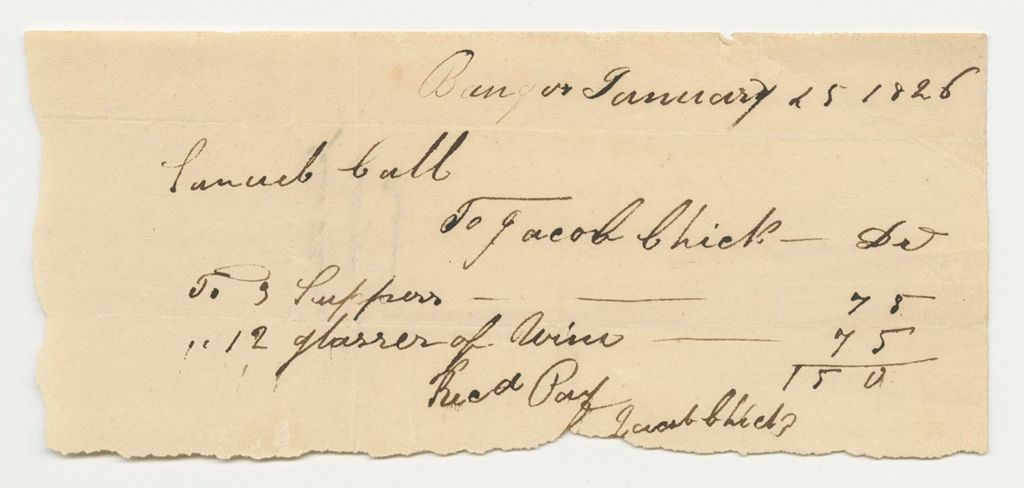 Bangor January 25 1826
Samuel Call
To Jacob Chick — Dr
To 3 Suppers — — 75
" 12 glasses of Wine — 75
150
Recd Pay
Jacob Chick